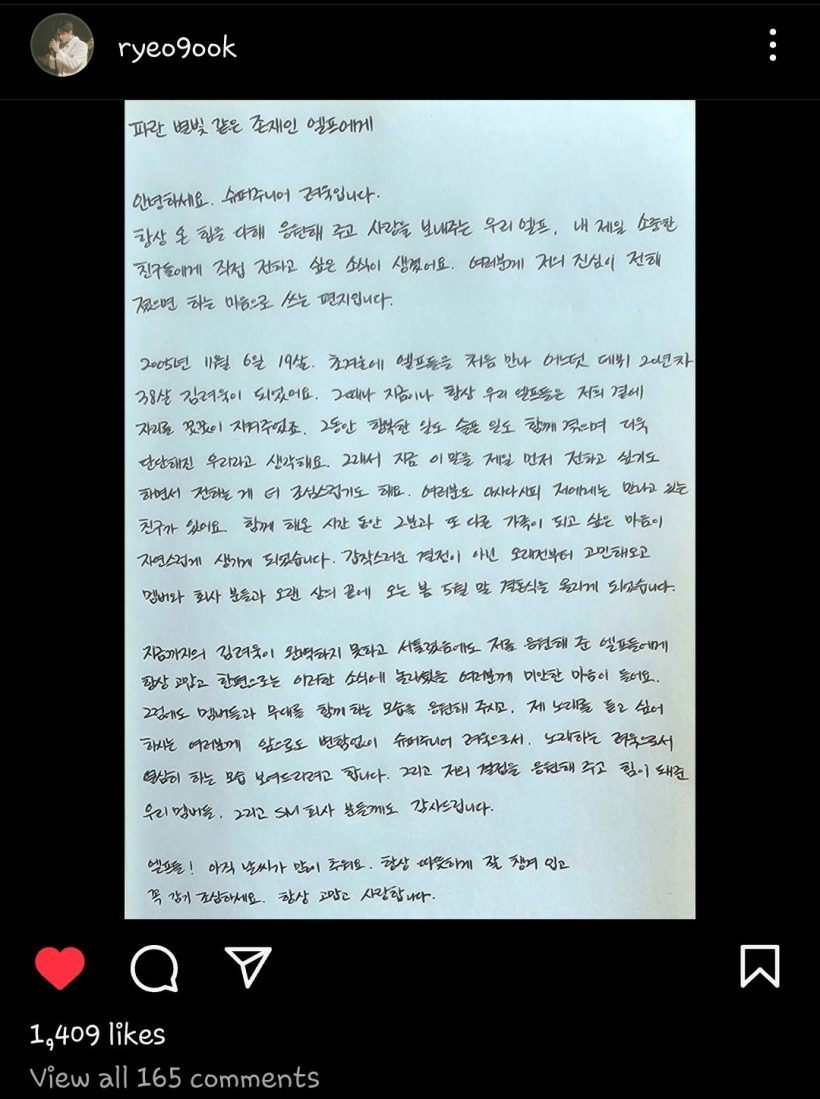 ryeo9ook
파란 별빛 같은 존재인 엘프에게
안녕하세요. 슈퍼주니어 려욱입니다.
항상 온 힘을 다해 응원해 주고 사랑을 보내주는 우리 엘프, 내 제일 소중한
친구들에게 직접 전하고 싶은 소식이 생겼어요. 여러분께 저의 진심이 전해
졌으면 하는 마음으로 쓰는 편지입니다.
2005년 11월 6일 19살. 초겨울에 엘프들을 처음 만나 어느덧 데뷔 20년차
38살 김려욱이 되었어요. 그때나 지금이나 항상 우리 엘프들은 저의 곁에
자리를 꿋꿋이 지켜주었죠. 그동안 행복한 일도 슬픈 일도 함께 겪으며 더욱
단단해진 우리라고 생각해요. 그래서 지금 이 말을 제일 먼저 전하고 싶기도
하면서 전하는 게 더 조심스럽기도 해요. 여러분도 아시다시피 저에게는 만나고 있는
친구가 있어요. 함께 해온 시간 동안 그분과 또 다른 가족이 되고 싶은 마음이
자연스럽게 생기게 되었습니다. 갑작스러운 결정이 아닌 오래전부터 고민해오고
멤버와 회사 분들과 오랜 상의 끝에 오는 봄 5월 말 결혼식을 올리게 되었습니다.
지금까지의 김려욱이 완벽하지 못하고 서툴렀음에도 저를 응원해 준 엘프들에게
항상 고맙고 한편으로는 이러한 소식에 놀라셨을 여러분께 미안한 마음이 들어요.
그럼에도 멤버들과 무대를 함께 하는 모습을 응원해 주시고, 제 노래를 듣고 싶어
하시는 여러분께 앞으로도 변함없이 슈퍼주니어 려욱으로서, 노래하는 려욱으로서
열심히 하는 모습 보여드리려고 합니다. 그리고 저의 결정을 응원해 주고 힘이 돼준
우리 멤버들, 그리고 SM 회사 분들께도 감사드립니다.
엘프들! 아직 날씨가 많이 추워요. 항상 따뜻하게 잘 챙겨 입고
꼭 감기 조심하세요. 항상 고맙고 사랑합니다.
1,409 likes
View all 165 comments